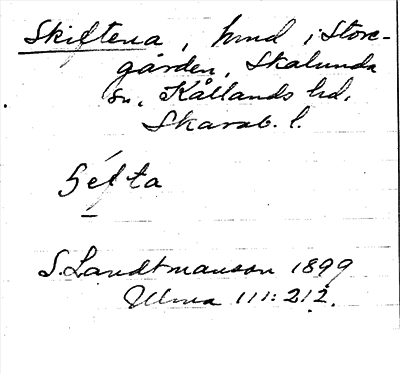 Skiftena, hmd i Store-
gården, Skalunda
sn, Kållands hd,
Skarab. l.
S. Landtmanson 1899
Ulma 111:212.